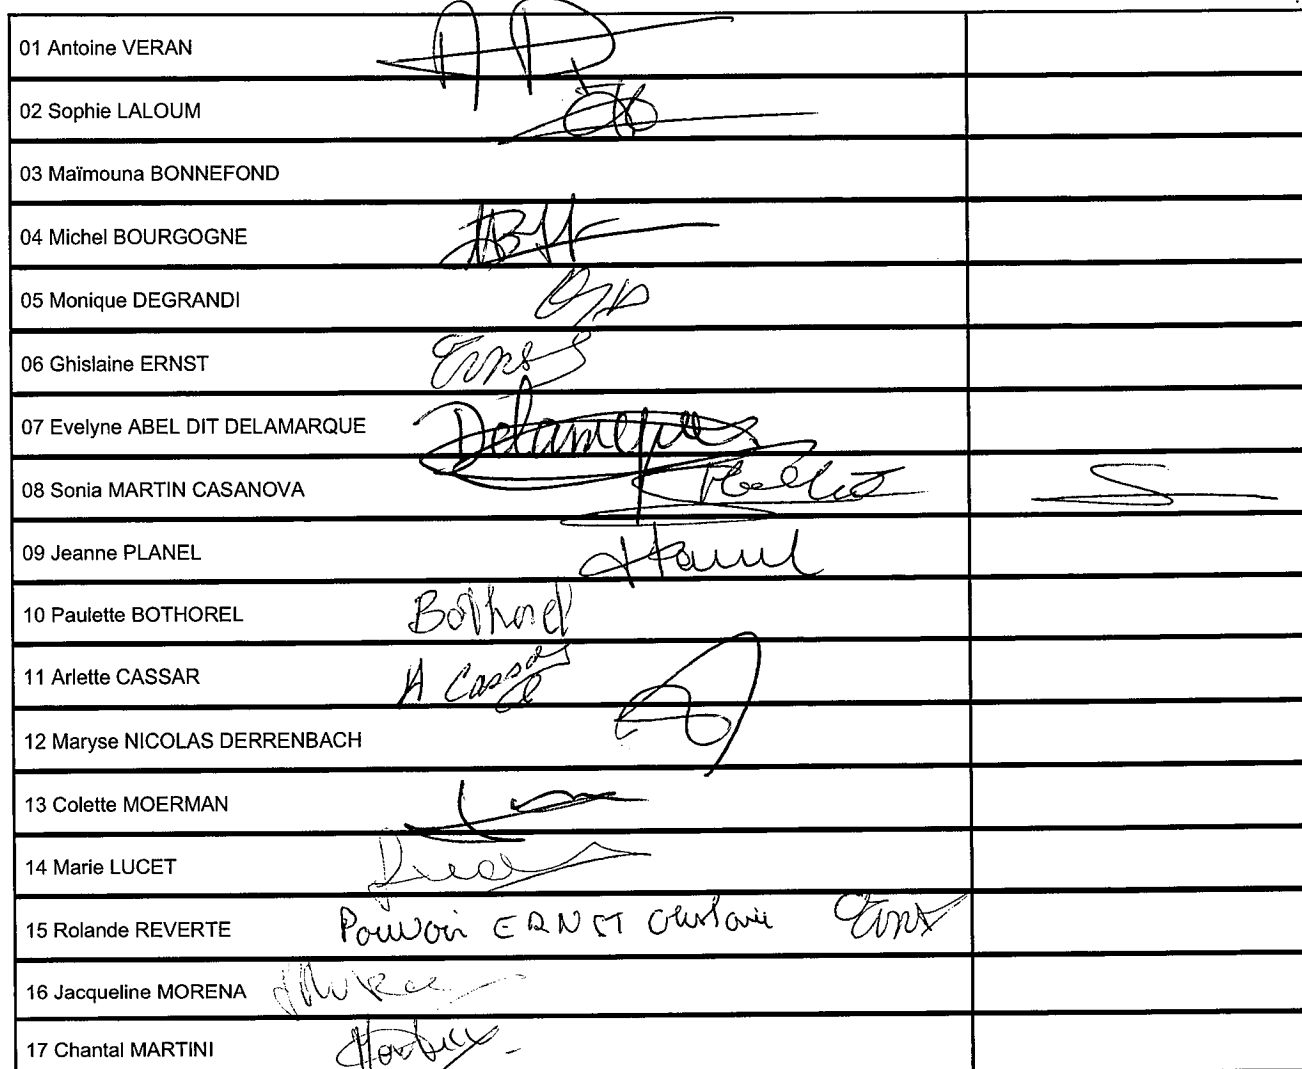 01 Antoine VERAN
02 Sophie LALOUM
03 Maïmouna BONNEFOND
04 Michel BOURGOGNE
05 Monique DEGRANDI
06 Ghislaine ERNST Ernst
07 Evelyne ABEL DIT DELAMARQUE
08 Sonia MARTIN CASANOVA
09 Jeanne PLANEL
10 Paulette BOTHOREL Bothorel
11 Arlette CASSAR A Cassar
12 Maryse NICOLAS DERRENBACH
13 Colette MOERMAN
14 Marie LUCET
15 Rolande REVERTE Pouvoir ERNST Ghislaine Ernst
16 Jacqueline MORENA
17 Chantal MARTINI